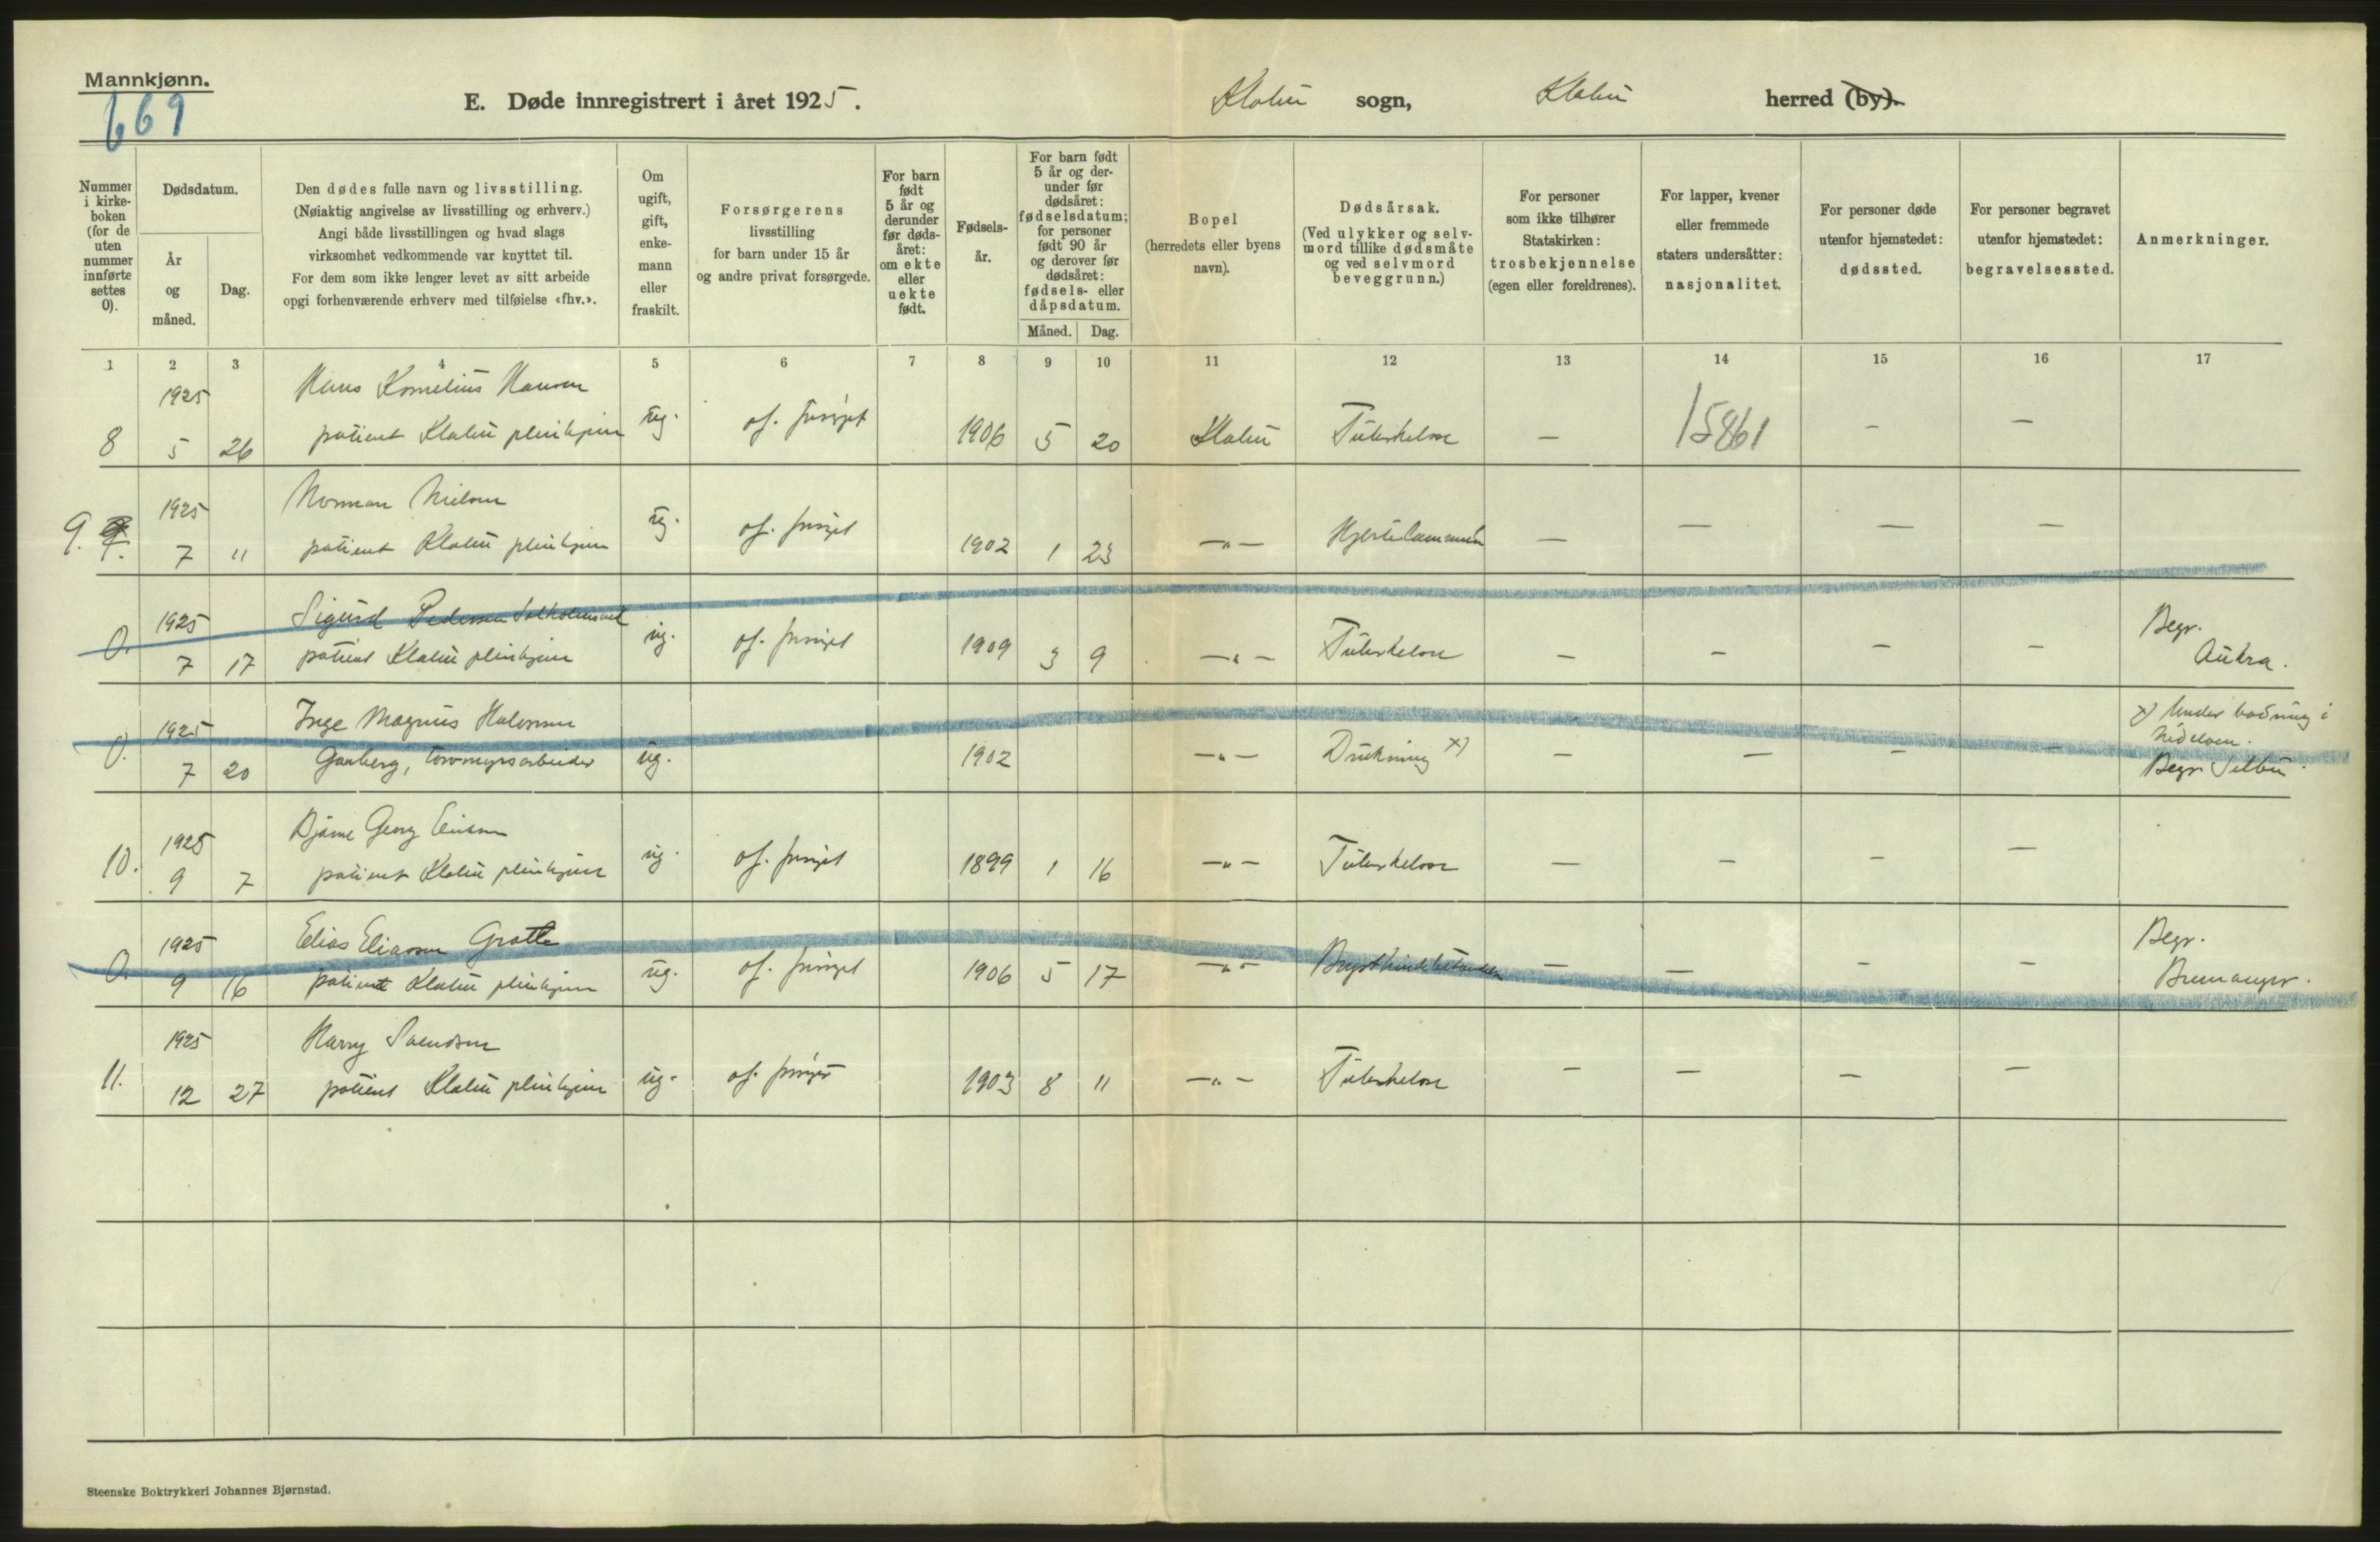 Mannkjønn.
669
E. Døde innregistrert i året 1925.
Klæbu sogn, Klæbu herred (by).
Nummer i kirke-boken (for de uten nummer innførte settes 0).
Dødsdatum.
År og måned.
Dag.
Den dødes fulle navn og livsstilling.
(Nøiaktig angivelse av livsstilling og erhverv.)
Angi både livsstillingen og hvad slags
virksomhet vedkommende var knyttet til.
For dem som ikke lenger levet av sitt arbeide
opgi forhenværende erhverv med tilføielse «fhv.».
Om ugift, gift, enke-mann eller fraskilt.
Forsørgerens
livsstilling
for barn under 15 år
og andre privat forsørgede.
For barn født 5 år og derunder før døds-året: om ekte eller uekte født.
Fødsels-år.
For barn født 5 år og der-under før dødsåret: fødselsdatum; for personer født 90 år og derover før dødsåret: fødsels- eller dåpsdatum.
Måned. Dag.
Bopel
(herredets eller byens
navn).
Dødsårsak.
(Ved ulykker og selv-
mord tillike dødsmåte
og ved selvmord
beveggrunn.)
For personer
som ikke tilhører
Statskirken:
trosbekjennelse
(egen eller foreldrenes).
For lapper, kvener
eller fremmede
staters undersåtter:
nasjonalitet.
For personer døde
utenfor hjemstedet:
dødssted.
For personer begravet
utenfor hjemstedet:
begravelsessted.
Anmerkninger.
1 2 3 4 5 6 7 8 9 10 11 12 13 14 15 16 17
1925 Hans Kornelius Hansen
8 5 26 patient Klæbu pleiehjem ug. of. forsørget 1906 5 20 Klæbu Tuberkelose — 15861 — —
1925 Norman Nielsen
9. 7 11 patient Klæbu pleiehjem ug. of. forsørget 1902 1 23 —"— — — — —
1925 Sigurd Pedersen
0. 7 17 patient Klæbu pleiehjem ug. of. forsørget 1909 3 9 —"— Tuberkelose — — — — Begr.
Aukra.
1925 Inge Magnus Halvorsen
0. 7 20 Garberg, torvmyrsarbeider ug. 1902 —"— Drukning x) — — — — x) Under badning i
Nidelven.
Begr. Selbu.
1925 Bjarne Georg Eriksen
10. 9 7 patient Klæbu pleiehjem ug. of. forsørget 1899 1 16 —"— Tuberkelose — — — —
1925 Elias Eliassen Grotle
0. 9 16 patient Klæbu pleiehjem ug. of. forsørget 1906 5 17 —"— Brysthindebetændelse — — — — Begr.
Bremanger.
1925 Harry Svendsen
11. 12 27 patient Klæbu pleiehjem ug. of. forsørget 1903 8 11 —"— Tuberkelose — — — —
Steenske Boktrykkeri Johannes Bjørnstad.